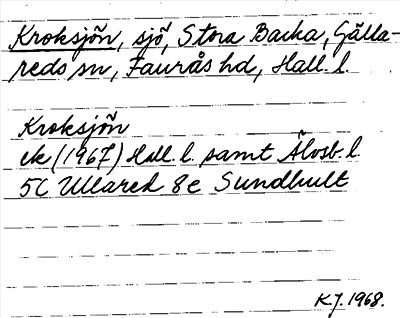 Kroksjön, sjö, Stora Backa, Gälla-
reds sn, Faurås hd, Hall. l.
Kroksjön
ek (1967) Hall. l. samt Älvsb. l.
5C Ullared 8e Sundhult
K.J. 1968.